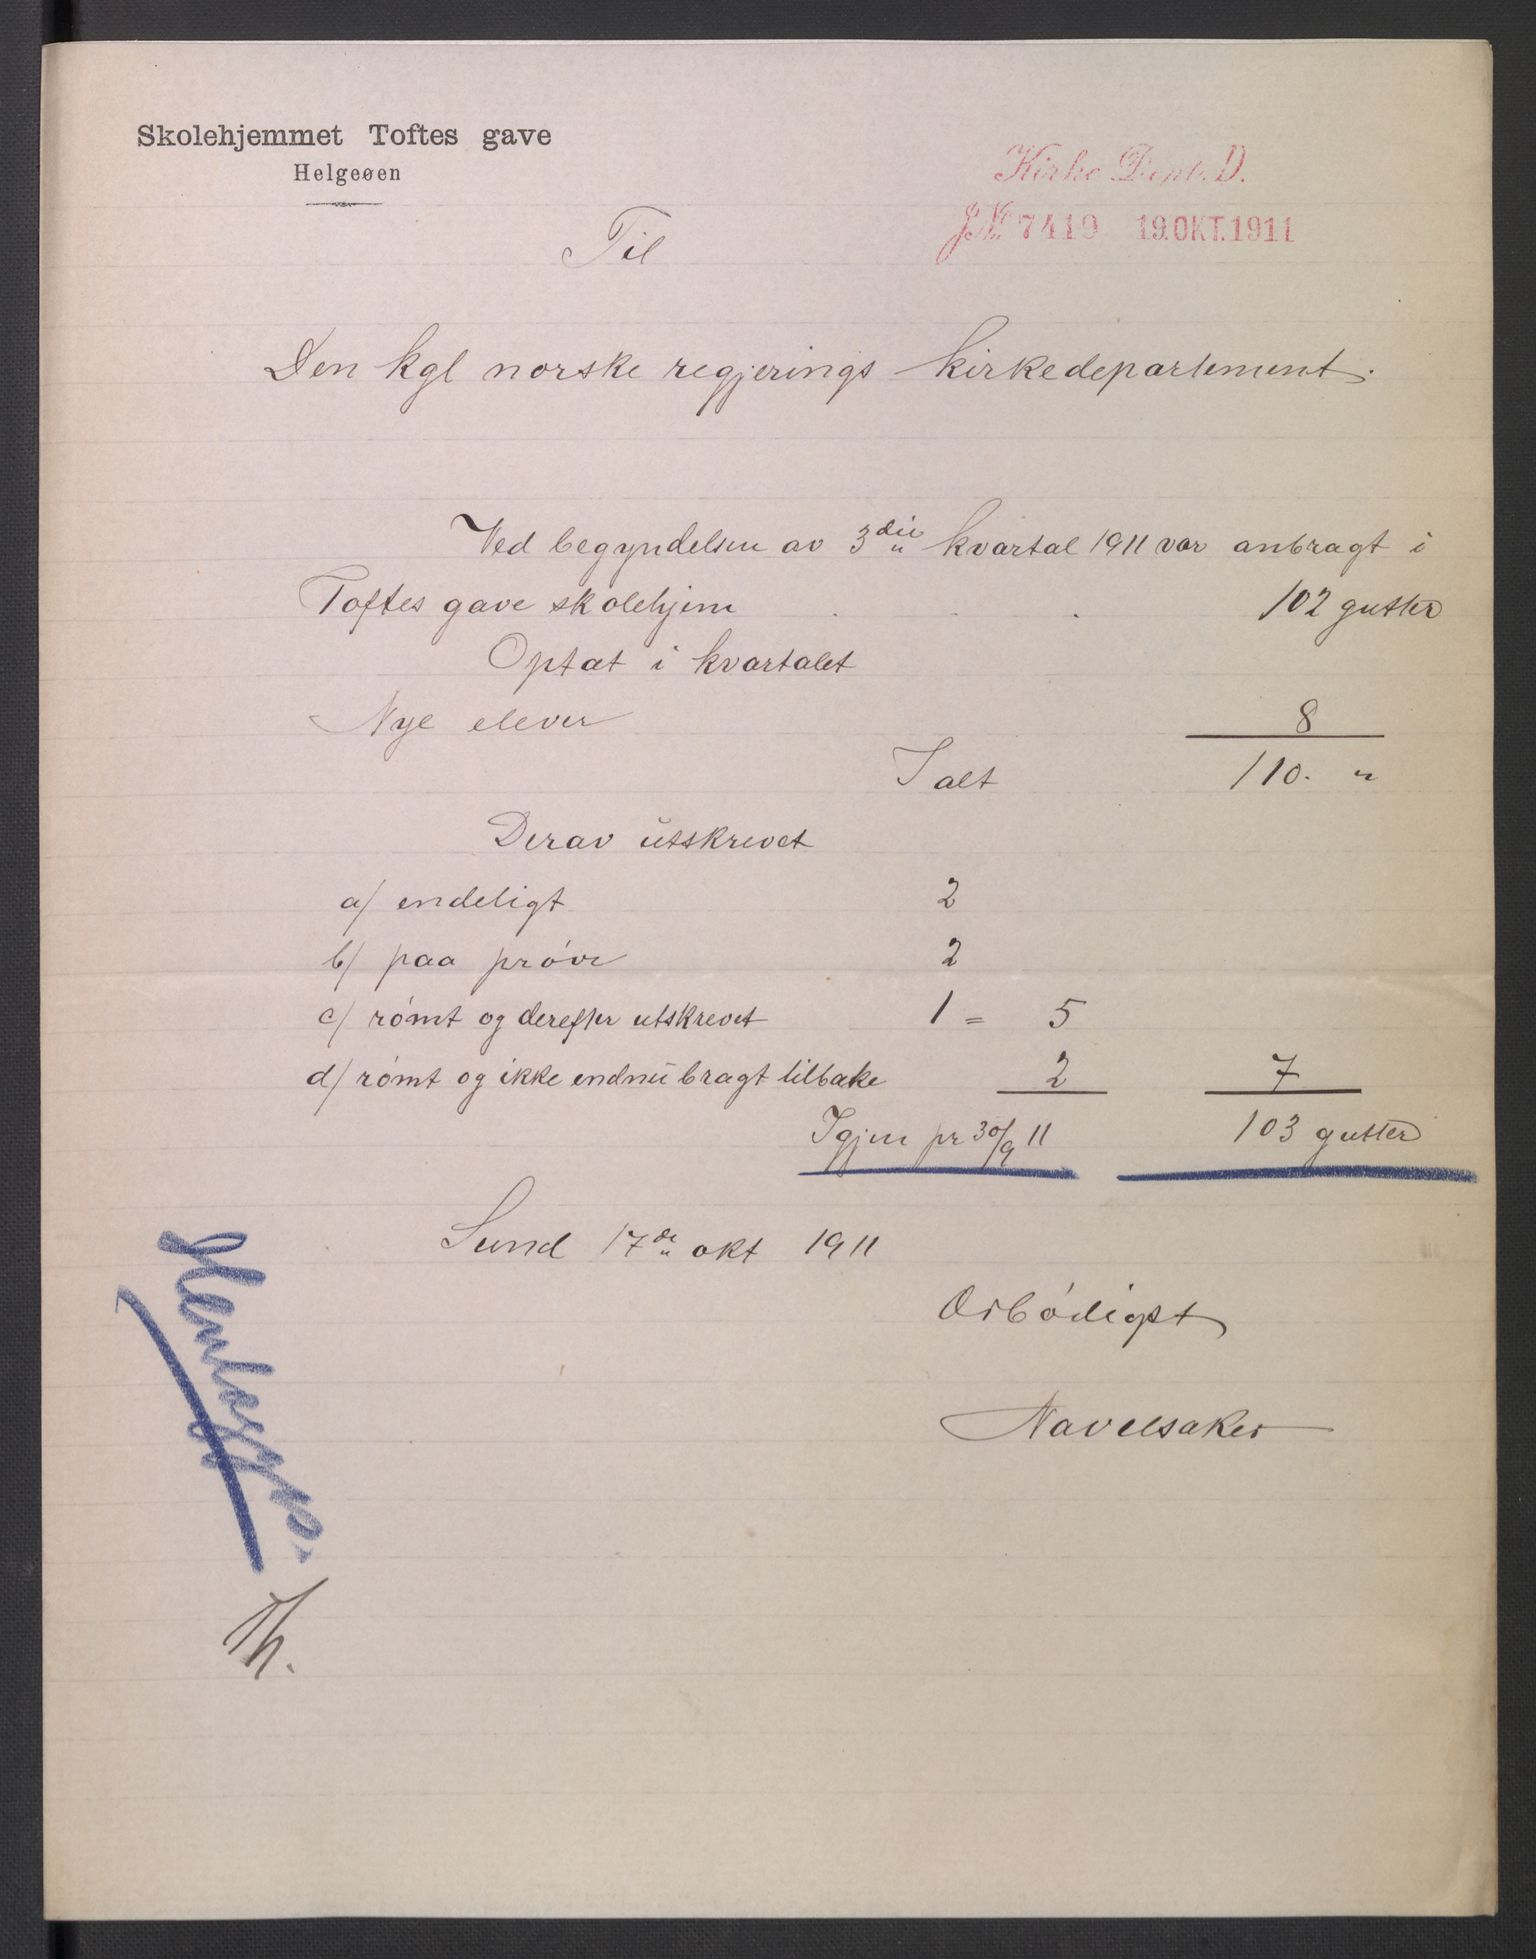 Skolehjemmet Toftes gave
Helgeøen
Kirke Dept. D.
J№ 7419 19.OKT.1911
Til
Den kgl norske regjerings kirkedepartement.
Ved begyndelsen av 3die kvartal 1911 var anbragt i
Toftes gave skolehjem . . . 102 gutter
Optat i kvartalet
Nye elever 8
I alt 110. "
Derav utskrevet
a/ endeligt 2
b/ paa prøve 2
c/ rømt og derefter utskrevet 1 = 5
d/ rømt og ikke endnu bragt tilbake 2 7
Igjen pr 30/9 11 103 gutter
Sund 17de okt 1911
Ærbødigst
Navelsaker
Henlægges.
Th.